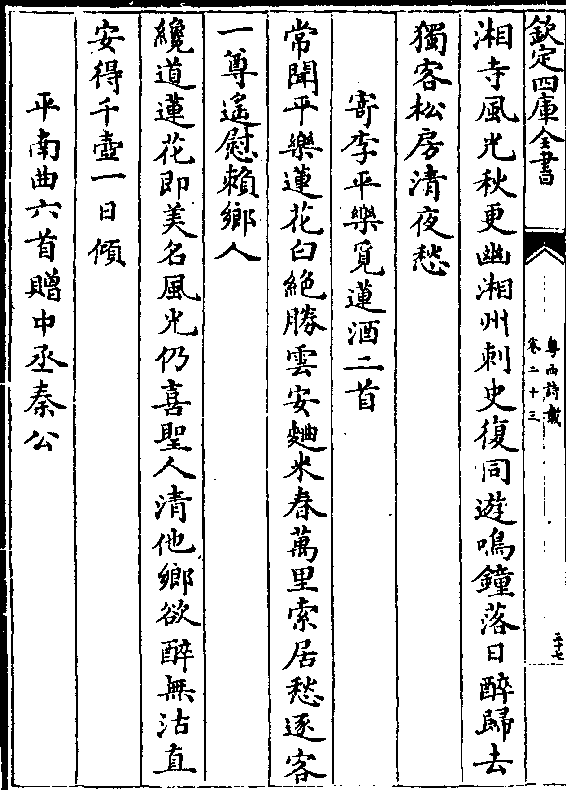 欽定四庫全書
粵西詩載
卷二十三
二十七
湘寺風光秋更幽湘州刺史復同遊鳴鐘落日醉歸去
獨客松房清夜愁
寄李平樂覓蓮酒二首
常聞平樂蓮花白絶勝雲安麯米春萬里索居愁逐客
一尊遙慰賴鄉人
纔道蓮花即美名風光仍喜聖人清他鄉欲醉無沽直
安得千壺一日傾
平南曲六首贈中丞秦公